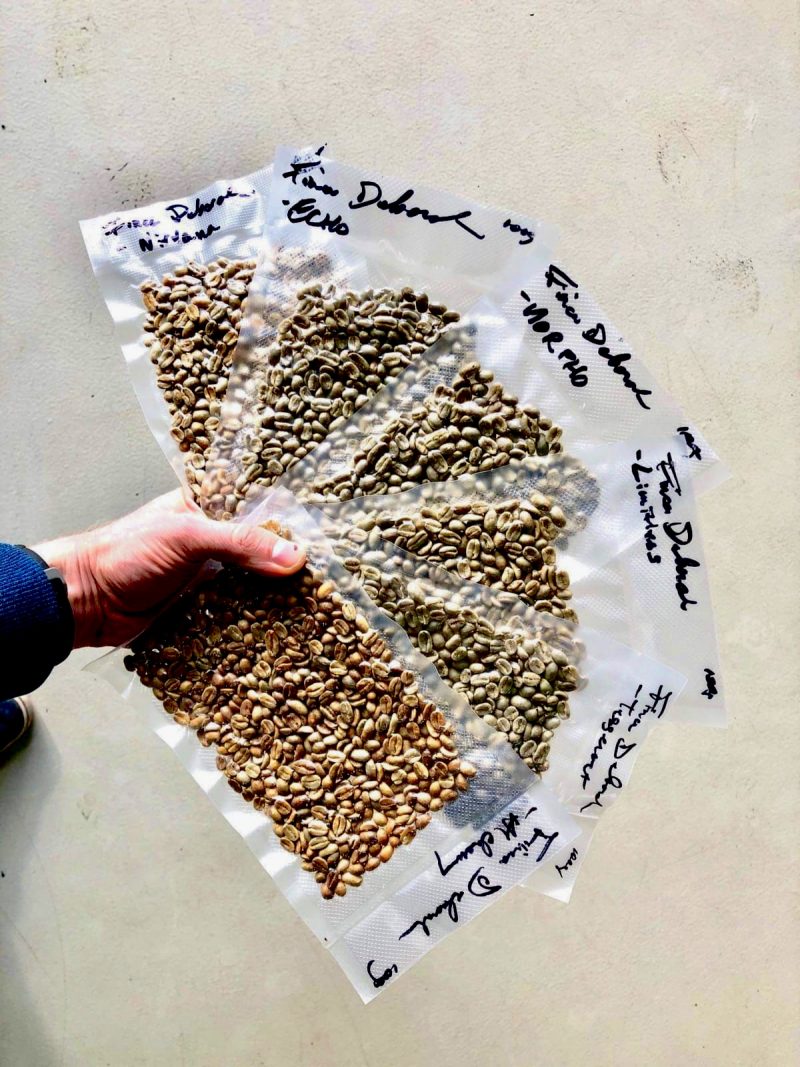 Finca Deborah
- Nirvana
Finca Deborah
- ECHO
100g
Finca Deborah
- MORPHO
100g
Finca Deborah
- Limitless
100g
Finca Deborah
- Terroir
100g
Finca Deborah
- Alchemy
100g